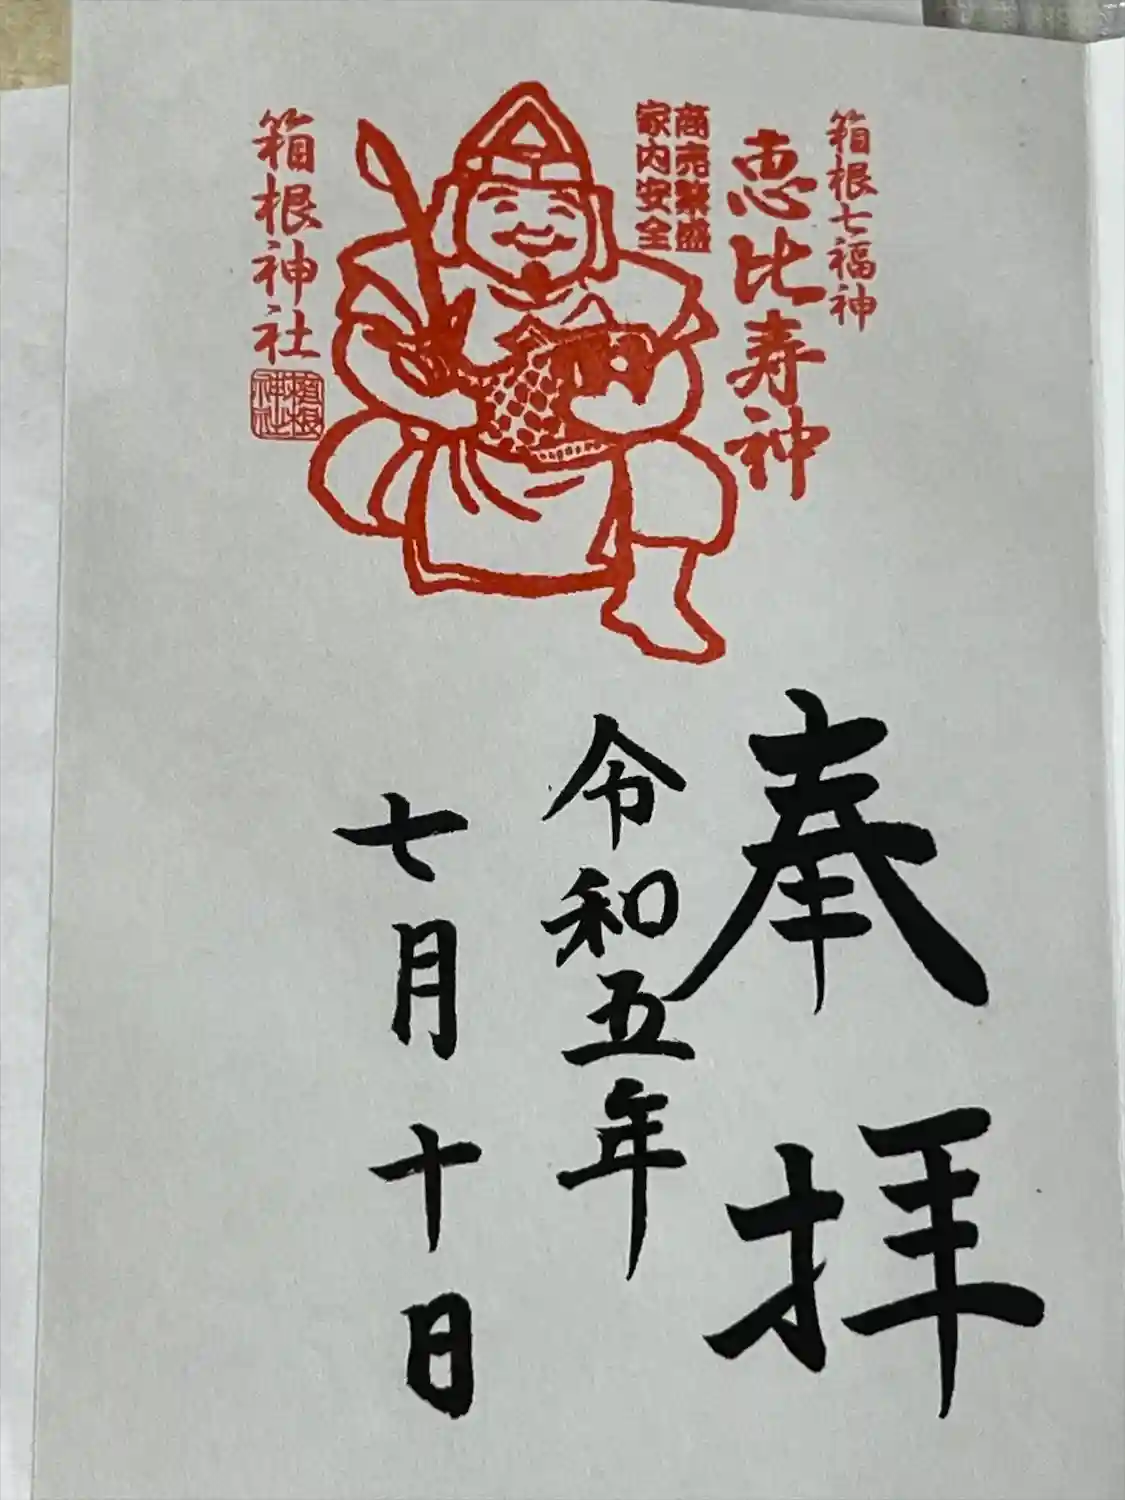 箱根七福神
恵比寿神
商売繁盛
家内安全
箱根神社
箱根
神社
奉拝
令和五年
七月十日